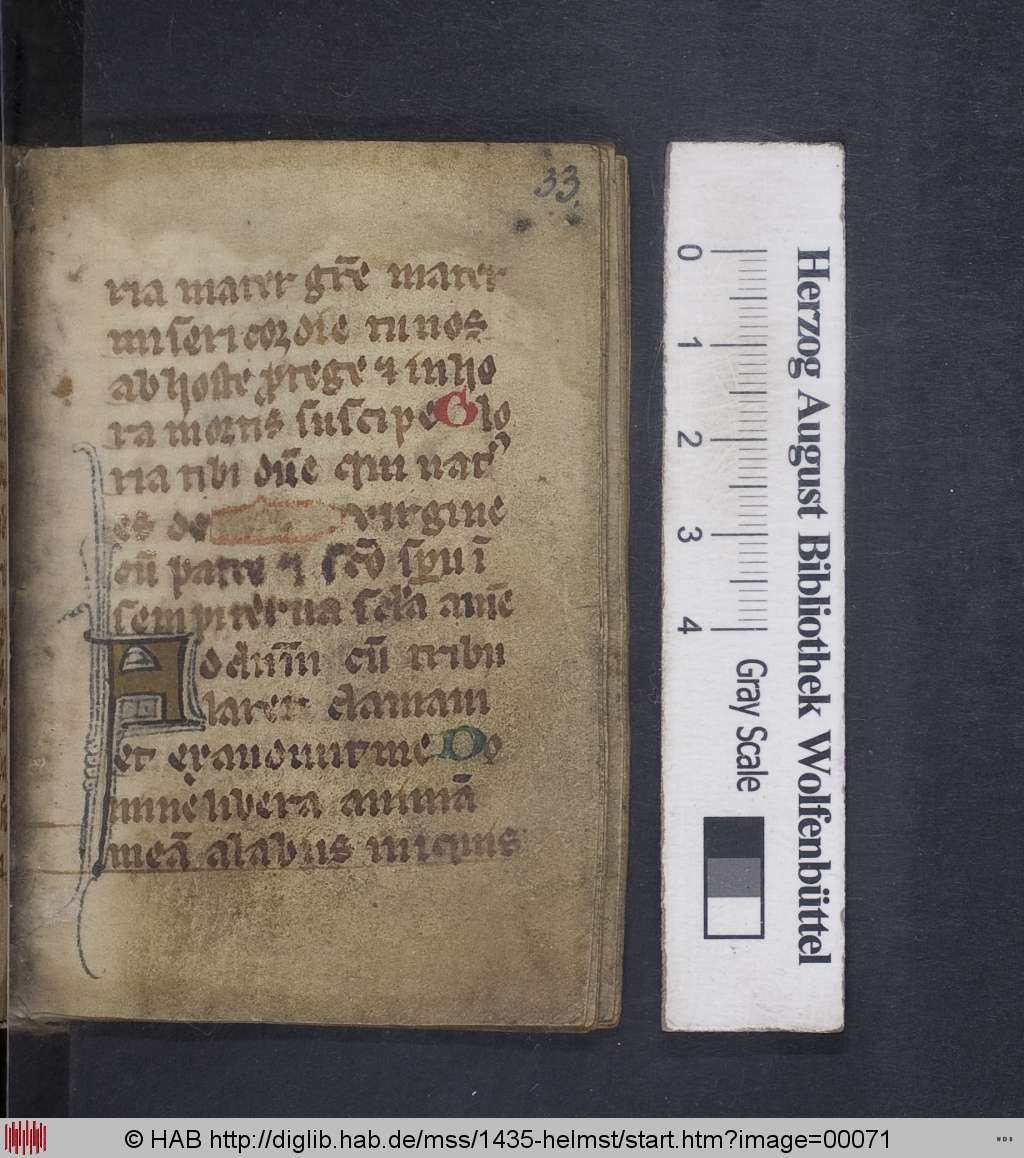 33
ria mater gr̄e mater
misericordie tu nos
ab hoste ꝓtege ⁊ in ho
ra mortis suscipe Glo
ria tibi dn̄e qui natꝰ
es de virgine
cū patre ⁊ sc̄o sp̄u ī
sempiterna sc̄la am̄e
Ad dn̄m cū tribu
larer clamaui
et exaudiuit me Do
mine libera animā
meā a labiis iniquis
0 1 2 3 4
Gray Scale
Herzog August Bibliothek Wolfenbüttel
© HAB http://diglib.hab.de/mss/1435-helmst/start.htm?image=00071